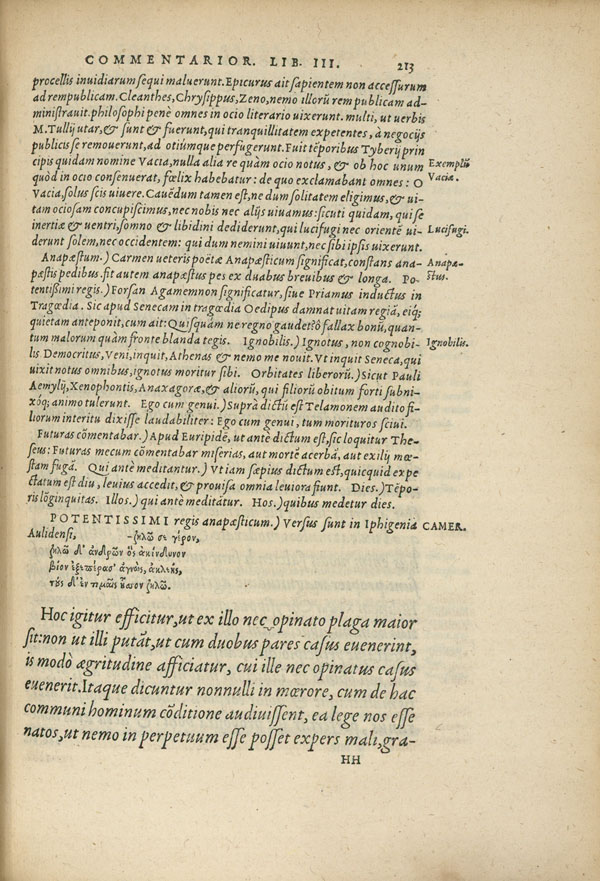 COMMENTARIOR. LIB. III. 213
procellis inuidiarum sequi maluerunt. Epicurus ait sapientem non accessurum
ad rempublicam. Cleanthes, Chrysippus, Zeno, nemo illorū rem publicam ad-
ministrauit. philosophi penè omnes in ocio literario uixerunt. multi, ut uerbis
M. Tullij utar, & sunt & fuerunt, qui tranquillitatem expetentes, à negocijs
publicis se remouerunt, ad otiumque perfugerunt. Fuit tēporibus Tyberij prin
cipis quidam nomine Vacia, nulla alia re quàm ocio notus, & ob hoc unum
Exemplū
quòd in ocio consenuerat, fœlix habebatur: de quo exclamabant omnes: O
Vacia.
Vacia, solus scis uiuere. Cauēdum tamen est, ne dum solitatem eligimus, & ui-
tam ociosam concupiscimus, nec nobis nec alijs uiuamus: sicuti quidam, qui se
inertiæ & uentri, somno & libidini dediderunt, qui lucifugi nec orientē ui-
Lucifugi.
derunt solem, nec occidentem: qui dum nemini uiuunt, nec sibi ipsis uixerunt.
Anapæstum.) Carmen ueteris poëtæ Anapæsticum significat, constans ana-
Anapæ-
pæstis pedibus. fit autem anapæstus pes ex duabus breuibus & longa. Po-
stus.
tentißimi regis.) Forsan Agamemnon significatur, siue Priamus inductus in
Tragœdia. Sic apud Senecam in tragœdia Oedipus damnat uitam regiā, eiq;
quietam anteponit, cum ait: Quisquàm ne regno gaudet? ô fallax bonū, quan-
tum malorum quàm fronte blanda tegis. Ignobilis.) Ignotus, non cognobi-
Ignobilis.
lis Democritus, Veni, inquit, Athenas & nemo me nouit. Vt inquit Seneca, qui
uixit notus omnibus, ignotus moritur sibi. Orbitates liberorū.) Sicut Pauli
Aemylij, Xenophontis, Anaxagoræ, & aliorū, qui filiorū obitum forti subni-
xóq; animo tulerunt. Ego cum genui.) Suprà dictū est Telamonem audito fi-
liorum interitu dixisse laudabiliter: Ego cum genui, tum morituros sciui.
Futuras cōmentabar.) Apud Euripidē, ut antè dictum est, sic loquitur The-
seus: Futuras mecum cōmentabar miserias, aut mortē acerbā, aut exilij mœ-
stam fugā. Qui antè meditantur.) Vt iam sæpius dictum est, quicquid expe
ctatum est diu, leuius accedit, & prouisa omnia leuiora fiunt. Dies.) Tēpo-
ris lōginquitas. Illos.) qui antè meditātur. Hos.) quibus medetur dies.
POTENTISSIMI regis anapæsticum.) Versus sunt in Iphigenia
CAMER.
Aulidensi, ζηλῶ σε γέρον,
ζηλῶ δ' ἀνδρῶν ὃς ἀκίνδυνον
βίον ἐξεπέρασ' ἀγνὼς, ἀκλεὴς,
τοὺς δ' ἐν τιμαῖς ἧσσον ζηλῶ.
Hoc igitur efficitur, ut ex illo nec opinato plaga maior
sit: non ut illi putāt, ut cum duobus pares casus euenerint,
is modò ægritudine afficiatur, cui ille nec opinatus casus
euenerit. Itaque dicuntur nonnulli in mœrore, cum de hac
communi hominum cōditione audiuissent, ea lege nos esse
natos, ut nemo in perpetuum esse posset expers mali, gra-
HH